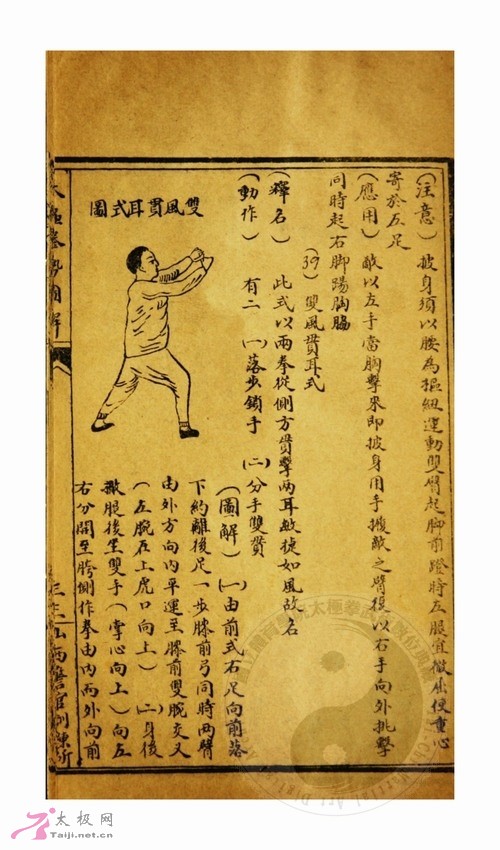 (注意)披身須以腰為樞紐運動雙臂起脚前蹬時左股宜微屈使重心
寄於左足
(應用)敵以左手當胸擊來即披身用手撥敵之臂後以右手向外挑擊
同時起右脚踢胸脇
(39)雙風貫耳式
(釋名) 此式以兩拳從側方貫擊兩耳敏捷如風故名
(動作) 有二 (一)落步鎖手 (二)分手雙貫
雙風貫耳式圖
(圖解)(一)由前式右足向前落
下約離後足一步膝前弓同時兩臂
由外方向内平運至膝前雙腕交叉
(左腕在上虎口向上)(二)身後
撤股後坐雙手(掌心向上)向左
右分開至胯側作拳由内而外向前
太極拳勢圖解
山西警官訓練所
太极网
Taiji.net.cn